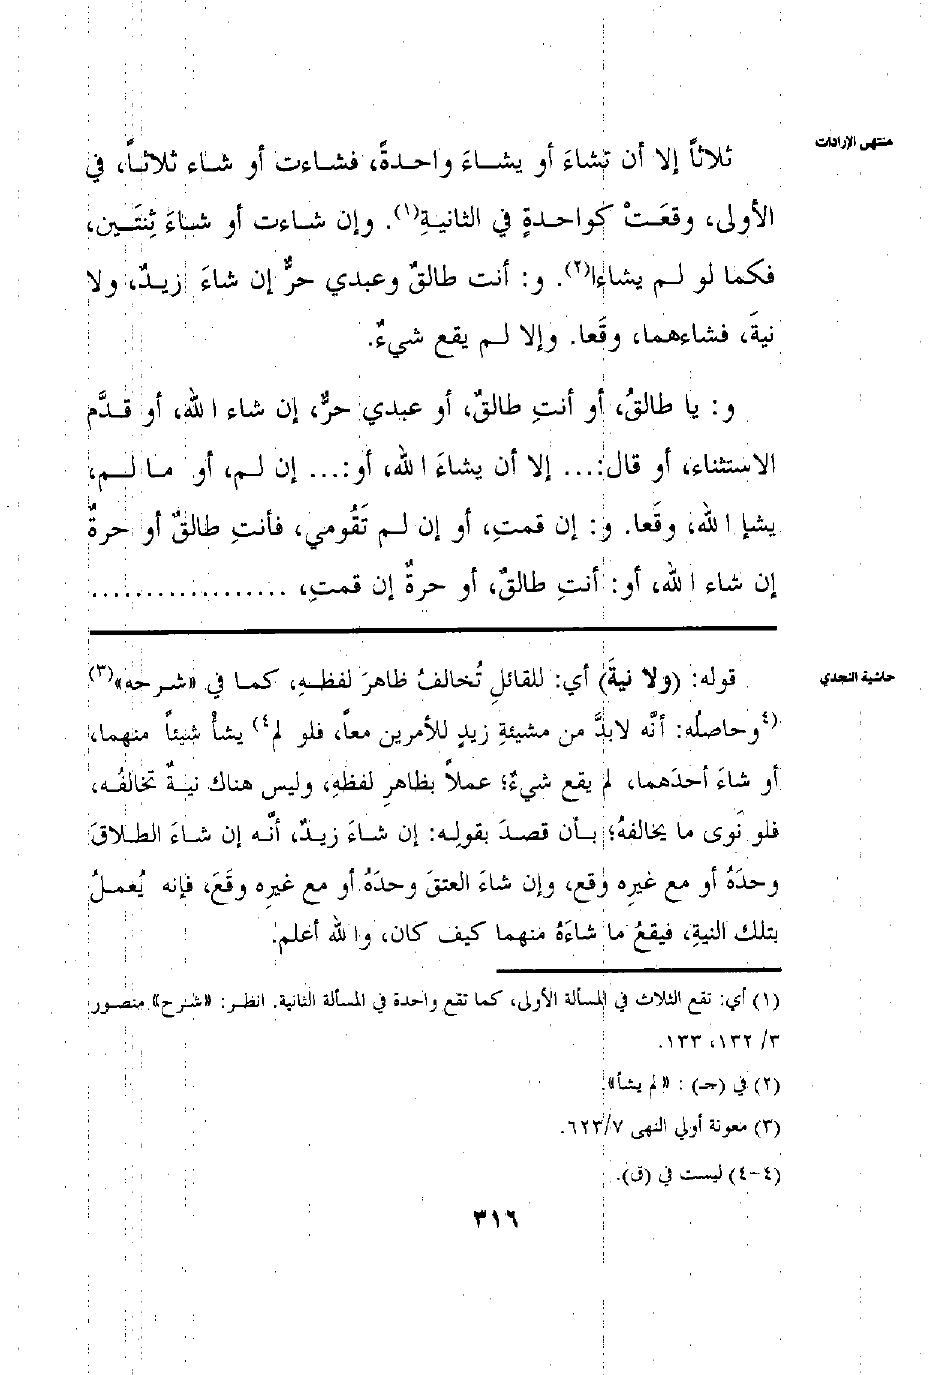 منتهى الإرادات
ثلاثاً إلا أن تشاءَ أو يشاءَ واحدةً، فشاءت أو شاء ثلاثاً، في
الأولى، وقعَتْ كواحدةٍ في الثانيةِ(١). وإن شاءت أو شاءَ ثِنتَين،
فكما لو لم يشاءا(٢). و: أنت طالقٌ وعبدي حرٌّ إن شاءَ زيدٌ، ولا
نيةَ، فشاءهما، وقَعا. وإلا لم يقع شيءٌ.
و: يا طالقُ، أو أنتِ طالقٌ، أو عبدي حرٌّ، إن شاء الله، أو قدَّم
الاستثناء، أو قال:... إلا أن يشاءَ الله، أو:... إن لم، أو ما لم،
يشإ الله، وقَعا. و: إن قمتِ، أو إن لم تَقُومي، فأنتِ طالقٌ أو حرةٌ
إن شاء الله، أو: أنتِ طالقٌ، أو حرةٌ إن قمتِ، ..................
حاشية النجدي
قوله: (ولا نيةَ) أي: للقائلِ تُخالفُ ظاهرَ لفظهِ، كما في «شرحه»(٣)
(٤وحاصلُه: أنَّه لابدَّ من مشيئةِ زيدٍ للأمرين معاً، فلو لم٤) يشأْ شيئاً منهما،
أو شاءَ أحدَهما، لم يقع شيءٌ؛ عملاً بظاهرِ لفظهِ، وليس هناك نيةٌ تخالفُه،
فلو نَوى ما يخالفهُ؛ بأن قصدَ بقولِه: إن شاءَ زيدٌ، أنَّه إن شاءَ الطلاقَ
وحدَهُ أو مع غيرِه وقع، وإن شاءَ العتقَ وحدَهُ أو مع غيرِه وقَعَ، فإنه يُعملُ
بتلك النيةِ، فيقعُ ما شاءَهُ منهما كيف كان، والله أعلم.
(١) أي: تقع الثلاث في المسألة الأولى، كما تقع واحدة في المسألة الثانية. انظر: «شرح» منصور
٣/ ١٣٢، ١٣٣.
(٢) في (جـ) : «لم يشأ».
(٣) معونة أولي النهى ٦٢٣/٧.
(٤-٤) ليست في (ق).
٣١٦